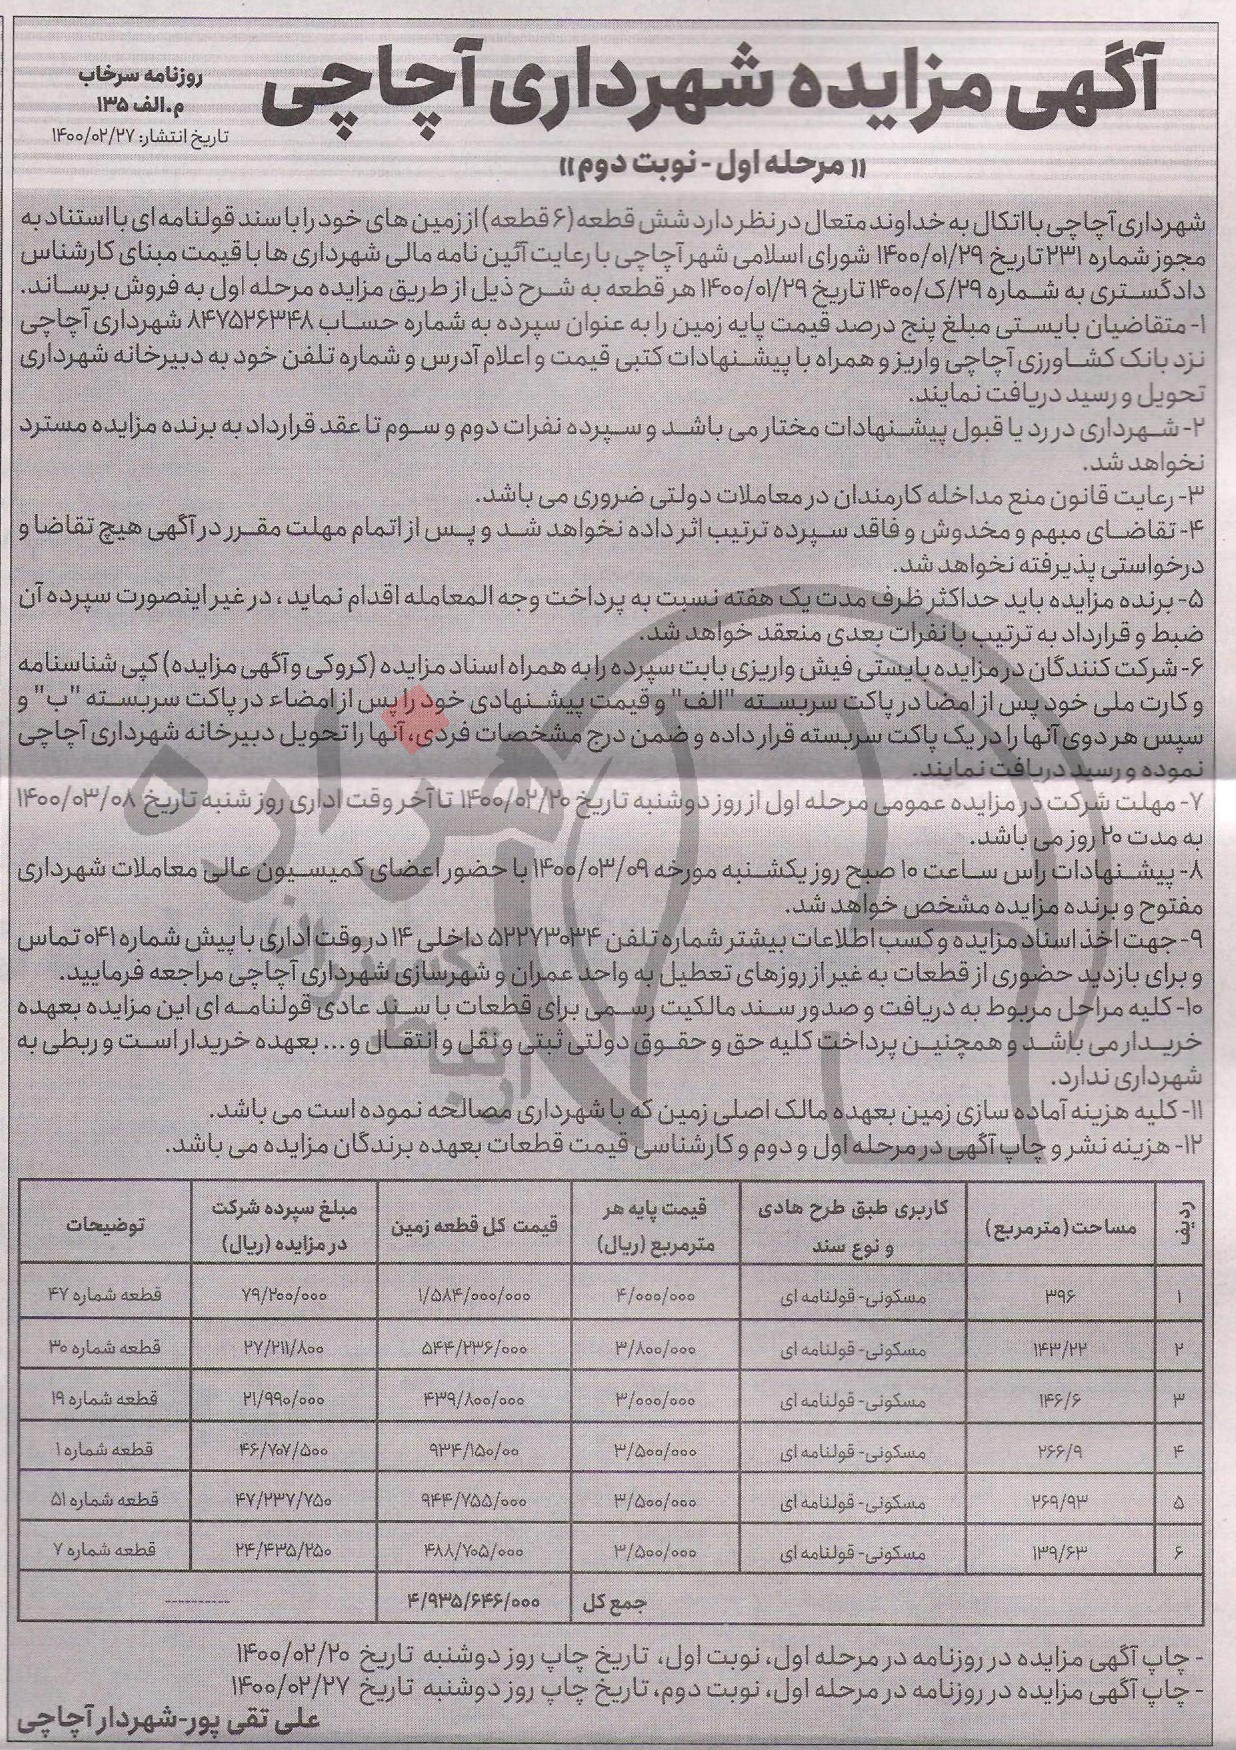 آگهی مزایده شهرداری آچاچی
روزنامه سرخاب
م.الف ۱۳۵
تاریخ انتشار: ۱۴۰۰/۰۲/۲۷
(( مرحله اول - نوبت دوم ))
شهرداری آچاچی با اتکال به خداوند متعال در نظر دارد شش قطعه (۶ قطعه) از زمین های خود را با سند قولنامه ای با استناد به
مجوز شماره ۲۳۱ تاریخ ۱۴۰۰/۰۱/۲۹ شورای اسلامی شهر آچاچی با رعایت آئین نامه مالی شهرداری ها با قیمت مبنای کارشناس
دادگستری به شماره ۲۹/ک/۱۴۰۰ تاریخ ۱۴۰۰/۰۱/۲۹ هر قطعه به شرح ذیل از طریق مزایده مرحله اول به فروش برساند.
۱- متقاضیان بایستی مبلغ پنج درصد قیمت پایه زمین را به عنوان سپرده به شماره حساب ۸۴۷۵۲۶۳۴۸ شهرداری آچاچی
نزد بانک کشاورزی آچاچی واریز و همراه با پیشنهادات کتبی قیمت و اعلام آدرس و شماره تلفن خود به دبیرخانه شهرداری
تحویل و رسید دریافت نمایند.
۲- شهرداری در رد یا قبول پیشنهادات مختار می باشد و سپرده نفرات دوم و سوم تا عقد قرارداد به برنده مزایده مسترد
نخواهد شد.
۳- رعایت قانون منع مداخله کارمندان در معاملات دولتی ضروری می باشد.
۴- تقاضای مبهم و مخدوش و فاقد سپرده ترتیب اثر داده نخواهد شد و پس از اتمام مهلت مقرر در آگهی هیچ تقاضا و
درخواستی پذیرفته نخواهد شد.
۵- برنده مزایده باید حداکثر ظرف مدت یک هفته نسبت به پرداخت وجه المعامله اقدام نماید ، در غیر اینصورت سپرده آن
ضبط و قرارداد به ترتیب با نفرات بعدی منعقد خواهد شد.
۶- شرکت کنندگان در مزایده بایستی فیش واریزی بابت سپرده را به همراه اسناد مزایده (کروکی و آگهی مزایده) کپی شناسنامه
و کارت ملی خود پس از امضا در پاکت سربسته "الف" و قیمت پیشنهادی خود را پس از امضاء در پاکت سربسته "ب" و
سپس هر دوی آنها را در یک پاکت سربسته قرار داده و ضمن درج مشخصات فردی، آنها را تحویل دبیرخانه شهرداری آچاچی
نموده و رسید دریافت نمایند.
۷- مهلت شرکت در مزایده عمومی مرحله اول از روز دوشنبه تاریخ ۱۴۰۰/۰۲/۲۰ تا آخر وقت اداری روز شنبه تاریخ ۱۴۰۰/۰۳/۰۸
به مدت ۲۰ روز می باشد.
۸- پیشنهادات راس ساعت ۱۰ صبح روز یکشنبه مورخه ۱۴۰۰/۰۳/۰۹ با حضور اعضای کمیسیون عالی معاملات شهرداری
مفتوح و برنده مزایده مشخص خواهد شد.
۹- جهت اخذ اسناد مزایده و کسب اطلاعات بیشتر شماره تلفن ۵۲۲۷۳۰۳۴ داخلی ۱۴ در وقت اداری با پیش شماره ۰۴۱ تماس
و برای بازدید حضوری از قطعات به غیر از روزهای تعطیل به واحد عمران و شهرسازی شهرداری آچاچی مراجعه فرمایید.
۱۰- کلیه مراحل مربوط به دریافت و صدور سند مالکیت رسمی برای قطعات با سند عادی قولنامه ای این مزایده بعهده
خریدار می باشد و همچنین پرداخت کلیه حق و حقوق دولتی ثبتی و نقل و انتقال و... بعهده خریدار است و ربطی به
شهرداری ندارد.
۱۱- کلیه هزینه آماده سازی زمین بعهده مالک اصلی زمین که با شهرداری مصالحه نموده است می باشد.
۱۲- هزینه نشر و چاپ آگهی در مرحله اول و دوم و کارشناسی قیمت قطعات بعهده برندگان مزایده می باشد.
ردیف | مساحت (مترمربع) | کاربری طبق طرح هادی و نوع سند | قیمت پایه هر مترمربع (ریال) | قیمت کل قطعه زمین | مبلغ سپرده شرکت در مزایده (ریال) | توضیحات
۱ | ۳۹۶ | مسکونی- قولنامه ای | ۴/۰۰۰/۰۰۰ | ۱/۵۸۴/۰۰۰/۰۰۰ | ۷۹/۲۰۰/۰۰۰ | قطعه شماره ۴۷
۲ | ۱۴۳/۲۲ | مسکونی- قولنامه ای | ۳/۸۰۰/۰۰۰ | ۵۴۴/۲۳۶/۰۰۰ | ۲۷/۲۱۱/۸۰۰ | قطعه شماره ۳۰
۳ | ۱۴۶/۶ | مسکونی- قولنامه ای | ۳/۰۰۰/۰۰۰ | ۴۳۹/۸۰۰/۰۰۰ | ۲۱/۹۹۰/۰۰۰ | قطعه شماره ۱۹
۴ | ۲۶۶/۹ | مسکونی- قولنامه ای | ۳/۵۰۰/۰۰۰ | ۹۳۴/۱۵۰/۰۰ | ۴۶/۷۰۷/۵۰۰ | قطعه شماره ۱
۵ | ۲۶۹/۹۳ | مسکونی- قولنامه ای | ۳/۵۰۰/۰۰۰ | ۹۴۴/۷۵۵/۰۰۰ | ۴۷/۲۳۷/۷۵۰ | قطعه شماره ۵۱
۶ | ۱۳۹/۶۳ | مسکونی- قولنامه ای | ۳/۵۰۰/۰۰۰ | ۴۸۸/۷۰۵/۰۰۰ | ۲۴/۴۳۵/۲۵۰ | قطعه شماره ۷
جمع کل | ۴/۹۳۵/۶۴۶/۰۰۰ | ----------
- چاپ آگهی مزایده در روزنامه در مرحله اول، نوبت اول، تاریخ چاپ روز دوشنبه تاریخ ۱۴۰۰/۰۲/۲۰
- چاپ آگهی مزایده در روزنامه در مرحله اول، نوبت دوم، تاریخ چاپ روز دوشنبه تاریخ ۱۴۰۰/۰۲/۲۷
علی تقی پور-شهردار آچاچی
هزاره